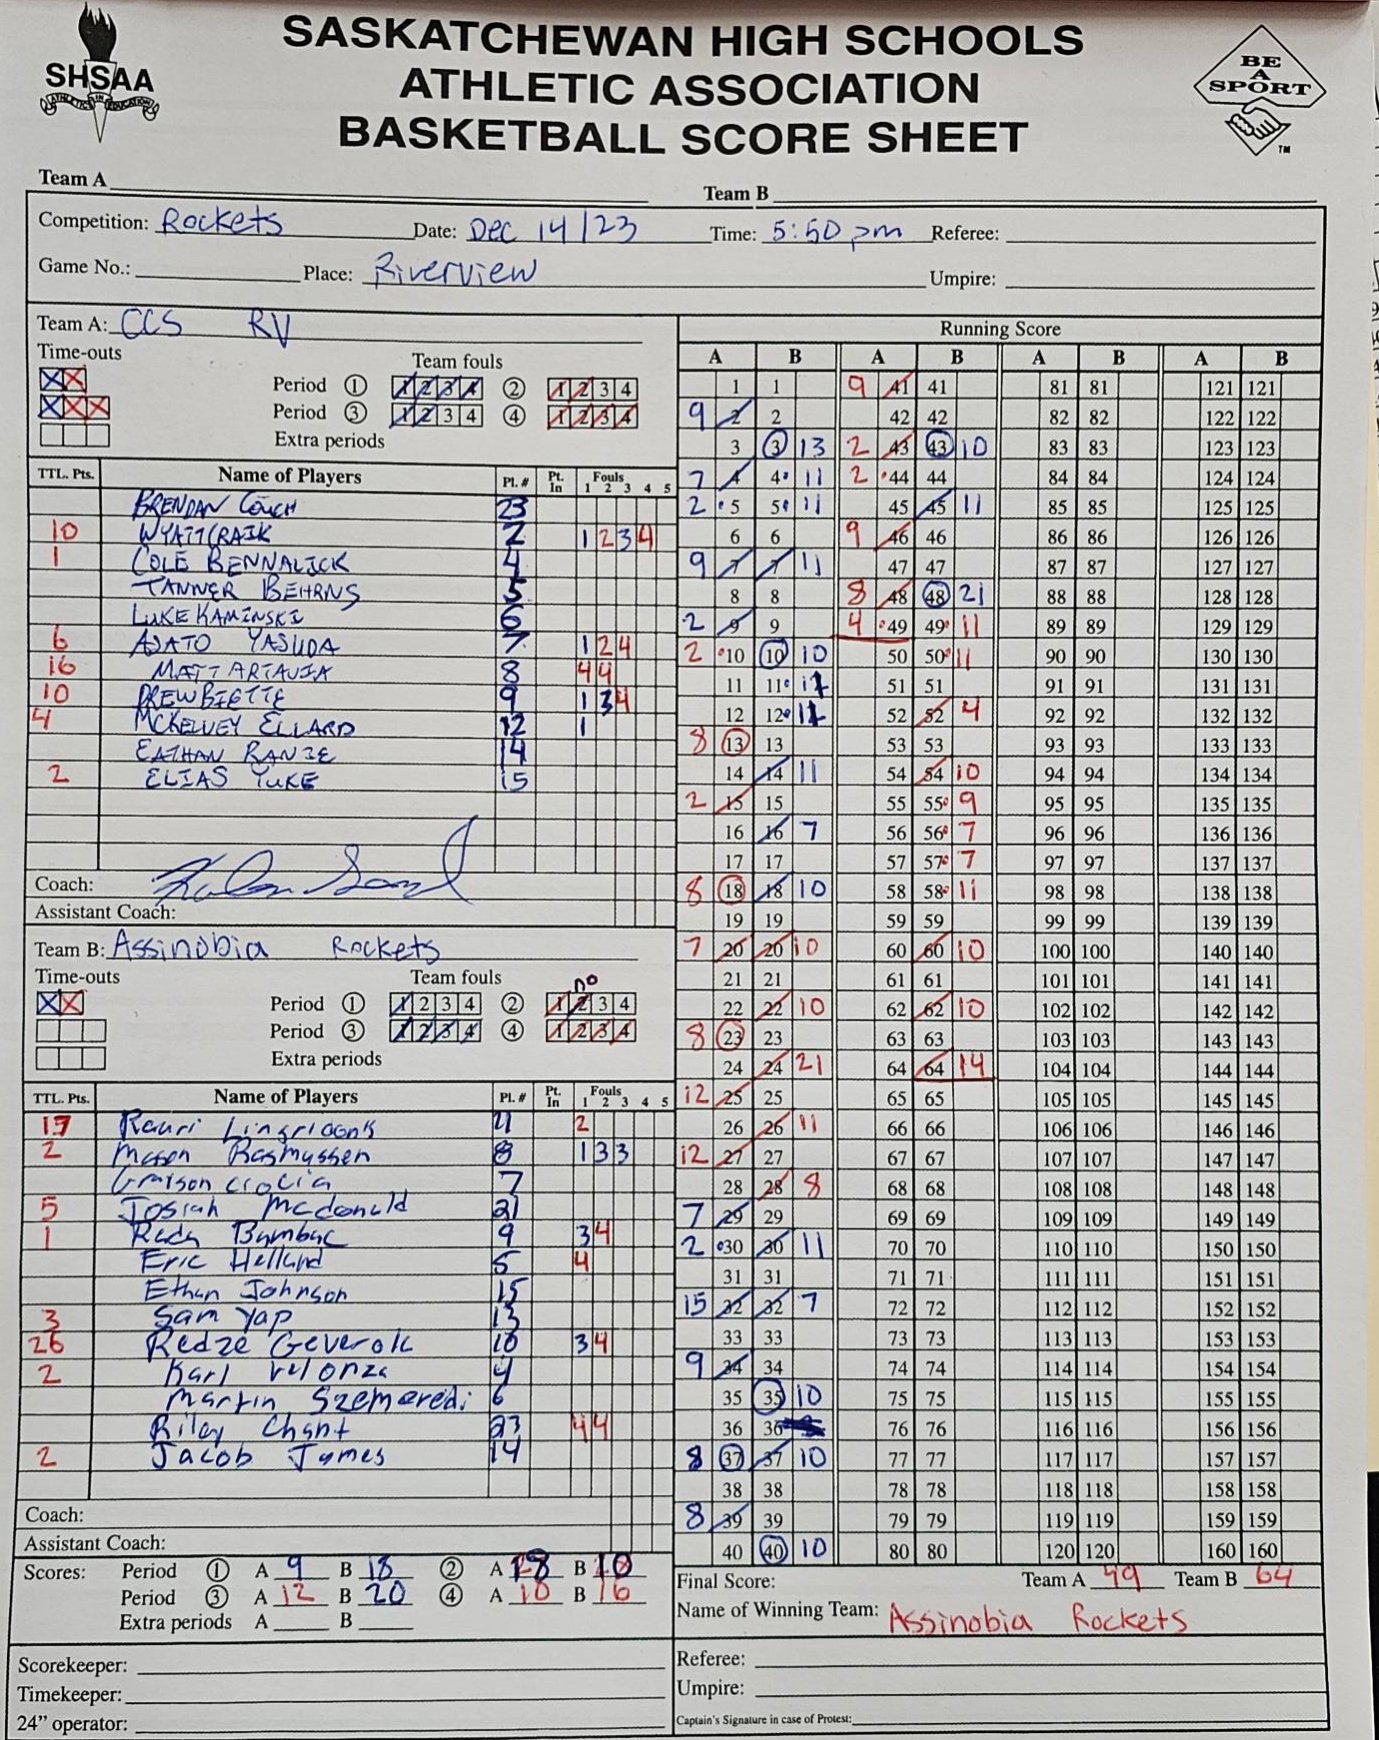 SASKATCHEWAN HIGH SCHOOLS
ATHLETIC ASSOCIATION
BASKETBALL SCORE SHEET
SHSAA
BE
A
SPORT
TM
Team A Team B
Competition: Rockets Date: Dec 14/23 Time: 5:50 pm Referee:
Game No.: Place: Riverview Umpire:
Team A: CCS RV
Time-outs Team fouls
Period 1 1 2 3 4 2 1 2 3 4
Period 3 1 2 3 4 4 1 2 3 4
Extra periods
TTL. Pts. Name of Players Pl. # Pt. In Fouls 1 2 3 4 5
BRENDAN COUCH 23
10 WYATT CRAIK 2 1 2 3 4
1 COLE BENNALICK 4
TANNER BEHRNS 5
LUKE KAMINSKI 6
6 ASATO YASUDA 7 1 2 4
16 MATT ARTAVIA 8 4 4
10 DREW BIETTE 9 1 3 4
4 MCKELVEY ELLARD 12 1
EATHAN 14
2 ELIAS YUKE 15
Coach:
Assistant Coach:
Team B: Assinobia Rockets
Time-outs Team fouls
no
Period 1 1 2 3 4 2 1 2 3 4
Period 3 1 2 3 4 4 1 2 3 4
Extra periods
TTL. Pts. Name of Players Pl. # Pt. In Fouls 1 2 3 4 5
17 Rauri 11 2
2 Mason Rasmussen 8 1 3 3
7
5 Josiah Mcdonald 21
1 Bumbac 9 3 4
Eric Helland 5 4
Ethan Johnson 15
3 Sam Yap 13
26 Redze Geverola 10 3 4
2 Karl Velonza 4
Martin Szemeredi 6
Riley Chant 23 4 4
2 Jacob James 14
Coach:
Assistant Coach:
Scores: Period 1 A 9 B 18 2 A 18 B 10
Period 3 A 12 B 20 4 A 10 B 16
Extra periods A B
Scorekeeper:
Timekeeper:
24" operator:
Running Score
A B A B A B A B
1 1 9 41 41 81 81 121 121
9 2 2 42 42 82 82 122 122
3 3 13 2 43 43 10 83 83 123 123
7 4 4 11 2 44 44 84 84 124 124
2 5 5 11 45 45 11 85 85 125 125
6 6 9 46 46 86 86 126 126
9 7 7 11 47 47 87 87 127 127
8 8 8 48 48 21 88 88 128 128
2 9 9 4 49 49 11 89 89 129 129
2 10 10 10 50 50 11 90 90 130 130
11 11 51 51 91 91 131 131
12 12 52 52 4 92 92 132 132
8 13 13 53 53 93 93 133 133
14 14 11 54 54 10 94 94 134 134
2 15 15 55 55 9 95 95 135 135
16 16 7 56 56 7 96 96 136 136
17 17 57 57 7 97 97 137 137
8 18 18 10 58 58 11 98 98 138 138
19 19 59 59 99 99 139 139
7 20 20 10 60 60 10 100 100 140 140
21 21 61 61 101 101 141 141
22 22 10 62 62 10 102 102 142 142
8 23 23 63 63 103 103 143 143
24 24 21 64 64 14 104 104 144 144
12 25 25 65 65 105 105 145 145
26 26 11 66 66 106 106 146 146
12 27 27 67 67 107 107 147 147
28 28 8 68 68 108 108 148 148
7 29 29 69 69 109 109 149 149
2 30 30 11 70 70 110 110 150 150
31 31 71 71 111 111 151 151
15 32 32 7 72 72 112 112 152 152
33 33 73 73 113 113 153 153
9 34 34 74 74 114 114 154 154
35 35 10 75 75 115 115 155 155
36 36 76 76 116 116 156 156
8 37 37 10 77 77 117 117 157 157
38 38 78 78 118 118 158 158
8 39 39 79 79 119 119 159 159
40 40 10 80 80 120 120 160 160
Final Score: Team A 49 Team B 64
Name of Winning Team: Assinobia Rockets
Referee:
Umpire:
Captain's Signature in case of Protest: